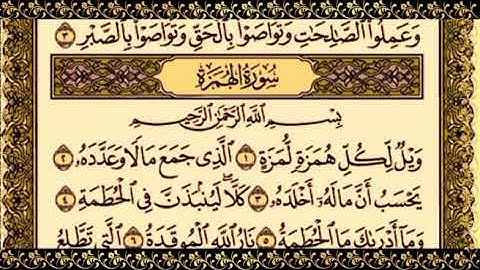 وَعَمِلُوا۟ ٱلصَّـٰلِحَـٰتِ وَتَوَاصَوْا۟ بِٱلْحَقِّ وَتَوَاصَوْا۟ بِٱلصَّبْرِ ٣
سُورَةُ الهُمَزَةِ
بِسْمِ ٱللَّهِ ٱلرَّحْمَـٰنِ ٱلرَّحِيمِ
وَيْلٌ لِّكُلِّ هُمَزَةٍ لُّمَزَةٍ ١ ٱلَّذِى جَمَعَ مَالًا وَعَدَّدَهُۥ ٢
يَحْسَبُ أَنَّ مَالَهُۥٓ أَخْلَدَهُۥ ٣ كَلَّا ۖ لَيُنۢبَذَنَّ فِى ٱلْحُطَمَةِ ٤
وَمَآ أَدْرَىٰكَ مَا ٱلْحُطَمَةُ ٥ نَارُ ٱللَّهِ ٱلْمُوقَدَةُ ٦ ٱلَّتِى تَطَّلِعُ